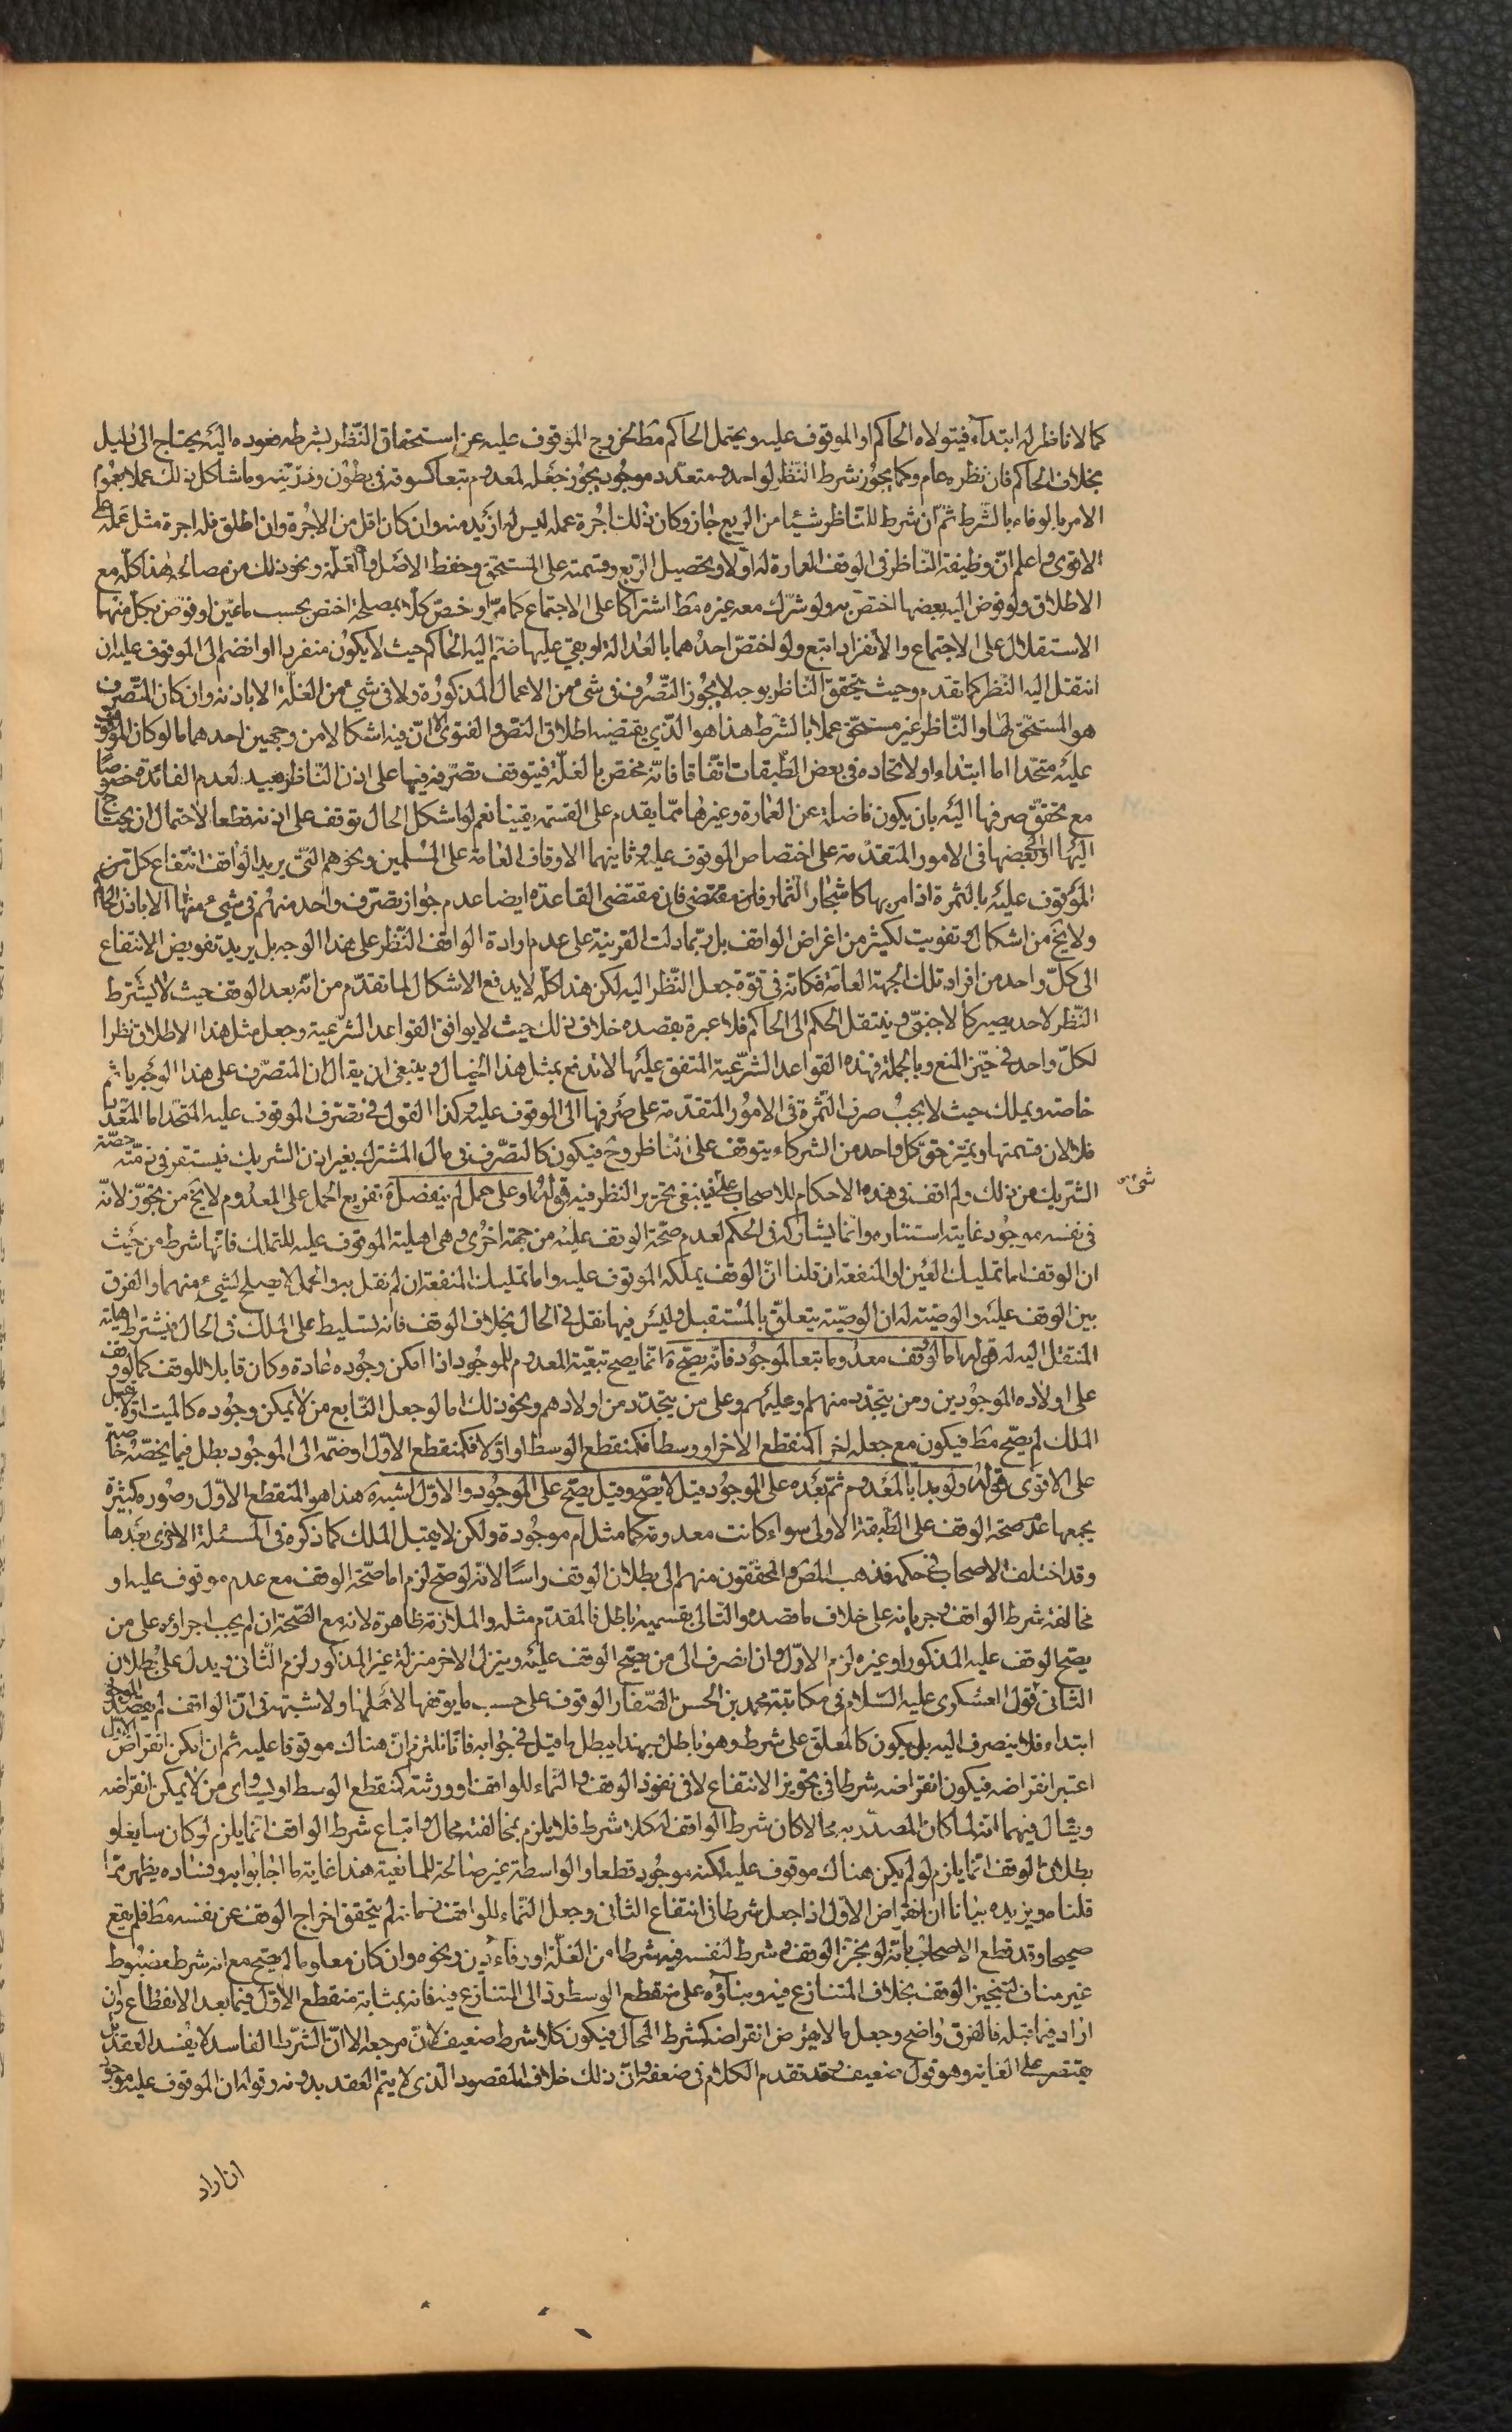 كما لا ناظر له ابتداء فيتولاه الحاكم او الموقوف عليه ويحتمل الحاكم مط لخروج الموقوف عليه عن استحقاق النظر بشرطه فعوده اليه يحتاج الى دليل
بخلاف الحاكم فان نظره عام وكما يجوز شرط النظر لواحد ومتعدد موجود يجوز جعله لمعدوم تبعا كسوقه في بطون وذريته وما شاكل ذلك عملا بعموم
الامر بالوفاء بالشرط ثم ان شرط للناظر شيئا من الريع جاز وكان ذلك اجرة عمله ليس له ازيد منه وان كان اقل من الاجرة وان اطلق فله اجرة مثل عمله على
الاقوى واعلم ان وظيفة الناظر في الوقف العمارة له اولا وتحصيل الريع وقسمته على المستحق وحفظ الاصل والغلة ونحو ذلك من مصالحه هذا كله مع
الاطلاق ولو فوض اليه بعضها اختص به ولو شرك معه غيره مط اشتركا على الاجتماع كما مر او خص كلا بمصلحة اختص بحسب ما عين او فوض بكل منهما
الاستقلال على الاجتماع والانفراد اتبع ولو اختص احدهما بالعدالة لو بقي عليها ضم اليه الحاكم حيث لا يكون منفردا او انضم الى الموقوف عليه ان
انتقل اليه النظر كما تقدم وحيث يتحقق الناظر بوجه لا يجوز التصرف في شئ من الاعمال المذكورة ولا في شئ من الغلة الا باذنه وان كان المتصرف
هو المستحق لها والناظر غير مستحق عملا بالشرط هذا هو الذي يقتضيه اطلاق النص والفتوى الا ان فيه اشكالا من وجهين احدهما ما لو كان الموقوف
عليه متحدا اما ابتداء او لاتحاده في بعض الطبقات اتفاقا فانه مختص بالغلة فيتوقف تصرفه فيها على اذن الناظر بعيد لعدم الفائدة خصوصا
مع تحقق صرفها اليه بان يكون فاضلة عن العمارة وغيرها مما يقدم على القسمة يقينا نعم لو اشكل الحال توقف على اذنه قطعا لاحتمال ان يحتاج
اليها او لبعضها في الامور المتقدمة على اختصاص الموقوف عليه وثانيهما الاوقاف العامة على المسلمين ونحوهم التي يريد الواقف انتفاع كل من
الموقوف عليه بالثمرة اذا مر بها كاشجار الثمار فان مقتضى القاعدة ايضا عدم جواز تصرف واحد منهم في شئ منها الا باذن الحاكم
ولا يخ من اشكال وتفويت لكثير من اغراض الواقف بل ربما دلت القرينة على عدم ارادة الواقف النظر على هذا الوجه بل يريد تفويض الانتفاع
الى كل واحد من افراد تلك الجهة العامة فكانه في قوة جعل النظر اليه لكن هذا كله لا يدفع الاشكال لما تقدم من انه بعد الوقف حيث لا يشترط
النظر لاحد يصير كالاجنبي وينتقل الحكم الى الحاكم فلا عبرة بقصده خلاف ذلك حيث لا يوافق القواعد الشرعية وجعل مثل هذا الاطلاق نظرا
لكل واحد في حيز المنع وبالجملة فهذه القواعد الشرعية المتفق عليها لا تدفع بمثل هذا الخيال وينبغي ان يقال ان المتصرف على هذا الوجه ياثم
خاصة ويملك حيث لا يجب صرف الثمرة في الامور المتقدمة على صرفها الى الموقوف عليه وكذا القول في تصرف الموقوف عليه المتحد اما المتعدد
فلا لان قسمتها وتميز حق كل واحد من الشركاء يتوقف على الناظر وح فيكون كالتصرف في مال المشترك بغير اذن الشريك فيستقر في ذمته حصة
الشريك من ذلك ولم اقف في هذه الاحكام للاصحاب على شئ فينبغي تحرير النظر فيه قوله وعلى حمل لم ينفصل ه‍ تفريع الحمل على المعدوم لا يخ من تجوز لانه
في نفسه موجود غايته استتاره وانما يشاركه في الحكم لعدم صحة الوقف عليه من جهة اخرى وهي اهلية الموقوف عليه للتملك فانها شرط من حيث
ان الوقف اما تمليك العين والمنفعة ان قلنا ان الوقف يملكه الموقوف عليه واما تمليك المنفعة ان لم نقل به والحمل لا يصلح لشئ منهما والفرق
بين الوقف عليه والوصية له ان الوصية يتعلق بالمستقبل وليس فيها نقل في الحال بخلاف الوقف فانه تسليط على الملك في الحال فيشترط اهلية
المنتقل اليه له قوله اما لو وقف معدوما تبعا لموجود فانه يصح ه‍ انما يصح تبعية المعدوم للموجود اذا امكن وجوده عادة وكان قابلا للوقف كما لو وقف
على اولاده الموجودين ومن يتجدد منهم او عليهم وعلى من يتجدد من اولادهم ونحو ذلك اما لو جعل التابع من لا يمكن وجوده كالميت او لا يقبل
الملك لم يصح مط فيكون مع جعله اخرا كمنقطع الاخر او وسطا فكمنقطع الوسط او اولا فكمنقطع الاول او ضمه الى الموجود بطل فيما يخصه خاصة
على الاقوى قوله ولو بدأ بالمعدوم ثم بعده على الموجود قيل لا يصح وقيل يصح على الموجود والاول اشبه ه‍ هذا هو المنقطع الاول وصوره كثيرة
يجمعها عدم صحة الوقف على الطبقة الاولى سواء كانت معدومة كما مثل ام موجودة ولكن لا يقبل الملك كما ذكره في المسئلة الاخرى بعدها
وقد اختلف الاصحاب في حكمه فذهب المص والمحققون منهم الى بطلان الوقف راسا لانه لو صح لزم اما صحة الوقف مع عدم موقوف عليه او
مخالفة شرط الواقف وجريانه على خلاف ما قصده والتالي بقسميه باطل فالمقدم مثله والملازمة ظاهرة لانه مع الصحة ان لم يجب اجراؤه على من
يصح الوقف عليه المذكور او غيره لزم الاول وان انصرف الى من يصح الوقف عليه وينزل الاخر منزلة غير المذكور لزم الثاني ويدل على بطلان
الثاني قول العسكري عليه السلام في مكاتبة محمد بن الحسن الصفار الوقوف على حسب ما يوقفها لا اهلها ولا شبهة في ان الواقف لم يقصد الموجود
ابتداء فلا ينصرف اليه بل يكون كالمعلق على شرط وهو باطل وبهذا يبطل ما قيل في جوابه فانا نلتزم ان هناك موقوفا عليه ثم ان امكن انقراض الاول
اعتبر انقراضه فيكون انقراضه شرطا في تجويز الانتفاع لا في نفوذ الوقف والنماء للواقف او ورثته كمنقطع الوسط او يساوي من لا يمكن انقراضه
ويقال فيهما انه لما كان المصدر به محالا كان شرط الواقف له كلا شرط فلا يلزم بمخالفته محال واتباع شرط الواقف انما يلزم لو كان سايغا و
بطلان الوقف انما يلزم لو لم يكن هناك موقوف عليه لكنه موجود قطعا والواسطة غير صالحة للمانعية هذا غاية ما اجابوا به وفساده يظهر مما
قلناه ويزيده بيانا ان انقراض الاول اذا جعل شرطا في انتفاع الثاني وجعل النماء للواقف زمانه لم يتحقق اخراج الوقف عن نفسه مط فلم يقع
صحيحا وقد قطع الاصحاب بانه لو نجز الوقف وشرط لنفسه فيه شرطا من الغلة او وفاء دين ونحوه وان كان معلوما لم يصح مع انه شرط مضبوط
غير مناف لتنجيز الوقف بخلاف المتنازع فيه وبناؤه على منقطع الوسط رد الى المتنازع فيه فانه بمثابة منقطع الاول فيما بعد الانقطاع وان
اراد فيما قبله فالفرق واضح وجعل ما لا يفرض انقراضه كشرط المحال فيكون كلا شرط ضعيف لان مرجعه الا ان الشرط الفاسد لا يفسد العقد بل
يقتصر على الغاية وهو قول ضعيف وقد تقدم الكلام في ضعفه وان ذلك خلاف المقصود الذي لا يتم العقد بدونه وقوله ان الموقوف عليه موجود
ان اراد